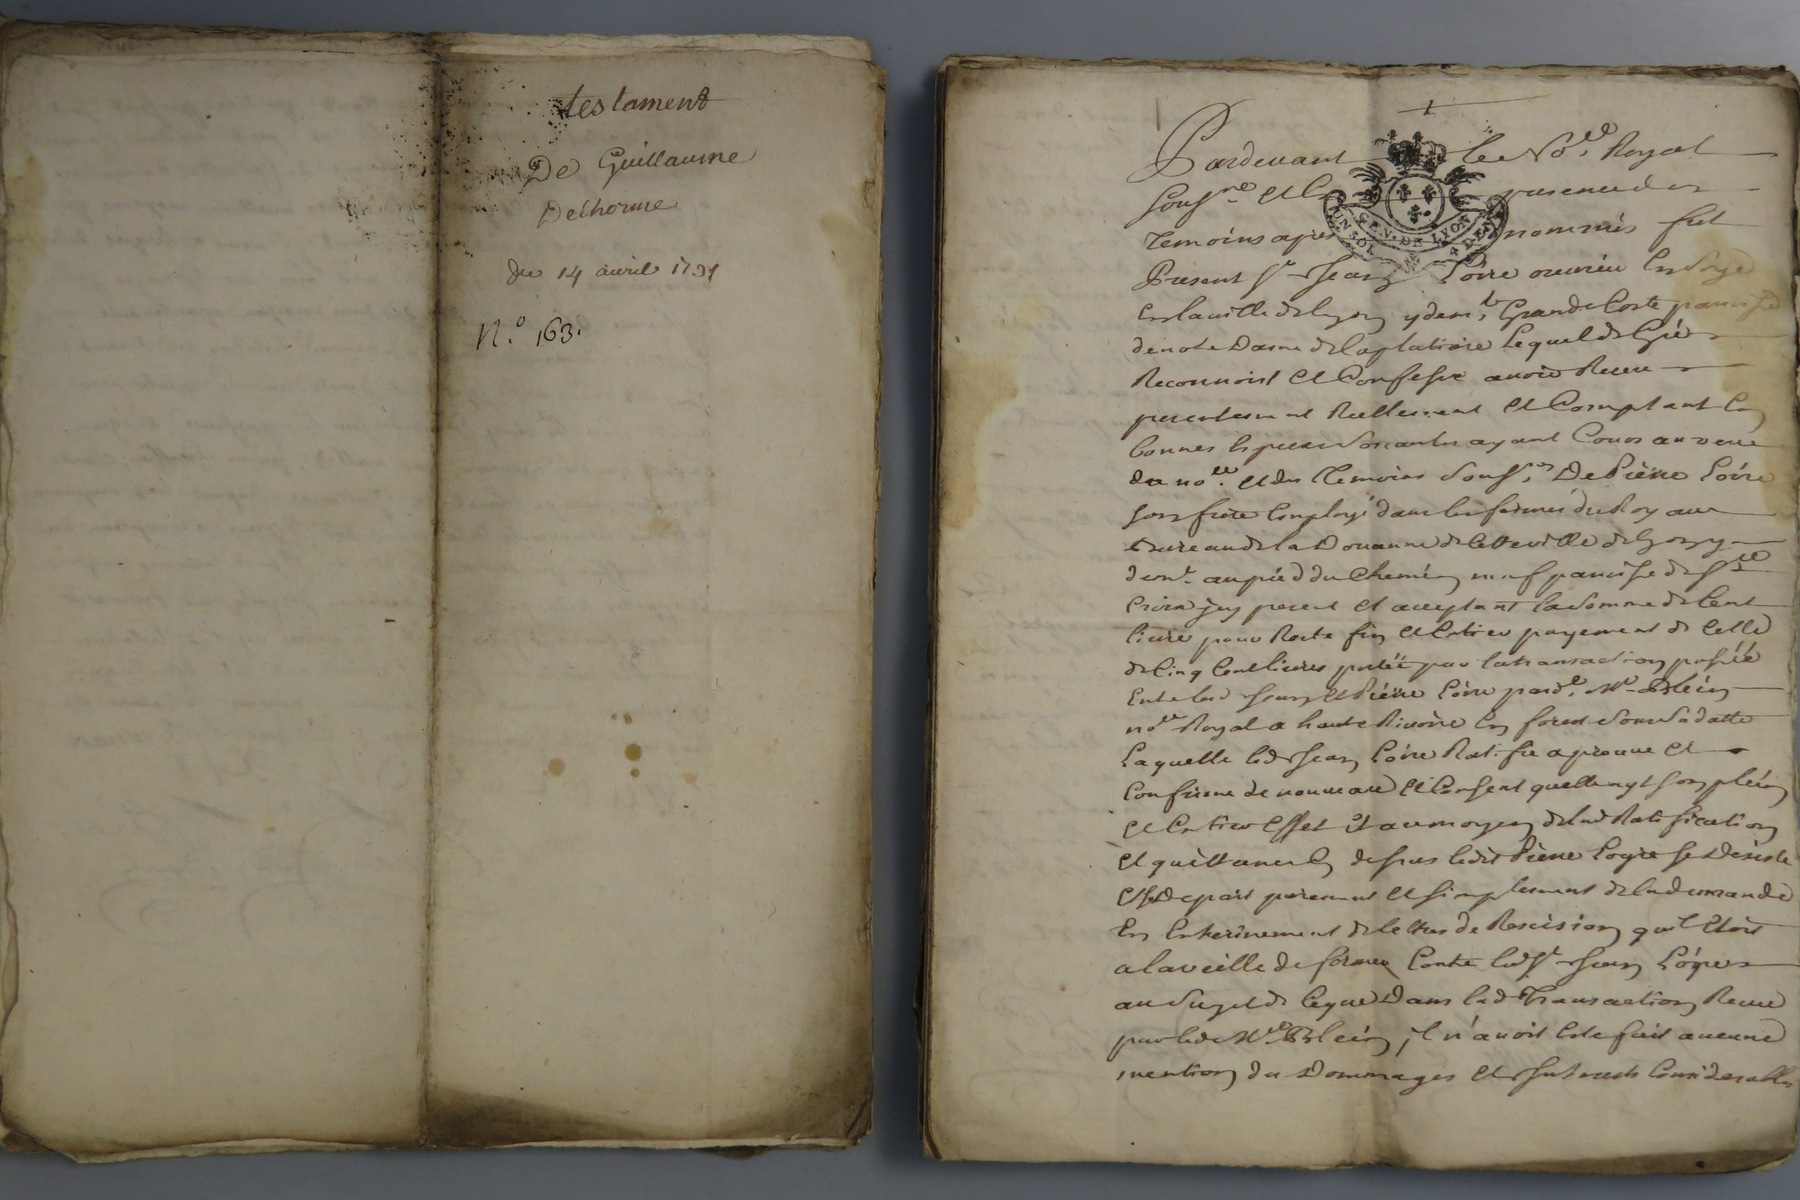 testament
De Guillaume
Delhorme
du 14 avril 1791
N.º 163.
1
Pardevant le No.re Royal
sous.né et En presence des
Temoins apres nommés fut
GEN. DE LYON
UN SOL 4 DEN
Present Sr Jean Loire ouvrier En soye
En la ville de Lyon y dem.t Grande Coste paroisse
de note Dame de la platiere Lequel de Gré
Reconnoist et Confesse avoir Receu
presentement Reellement et Comptant En
bonnes Especes sonantes ayant Cours au veu
du no.re et des Temoins sous.nes De Pierre Loire
son frere Employé dans les fermes du Roy au
Bureau de la Douanne de Cette ville de Lyon y
dem.t au pied du Chemin neuf paroisse de Ste
Croix jcy present et acceptant la somme de Cent
livre pour Reste fin et Entier payement de Celle
de Cinq Cent livres portée par la transaction passée
Entre led Jean et Pierre Loire pard.t Me Blein
no.re Royal a haute Rivoire En forest sous sa datte
Laquelle led Jean Loire Ratifie aprouve et
Confirme de nouveau et Consent quelle ayt son plein
et Entier Effet et au moyen de lad Ratification
et quittance Cy dessus ledit Pierre Loyre se Desiste
et se Depart purement et simplement de la demande
En Enterinement de lettres de Rescision quil Etoit
a la veille de former Contre led Sr Jean Loyre
au sujet de Ceque Dans lad Transaction Receue
par led Me Blein, jl n'avoit Esté fait aucune
mention des Dommages et Jnterests Considerables